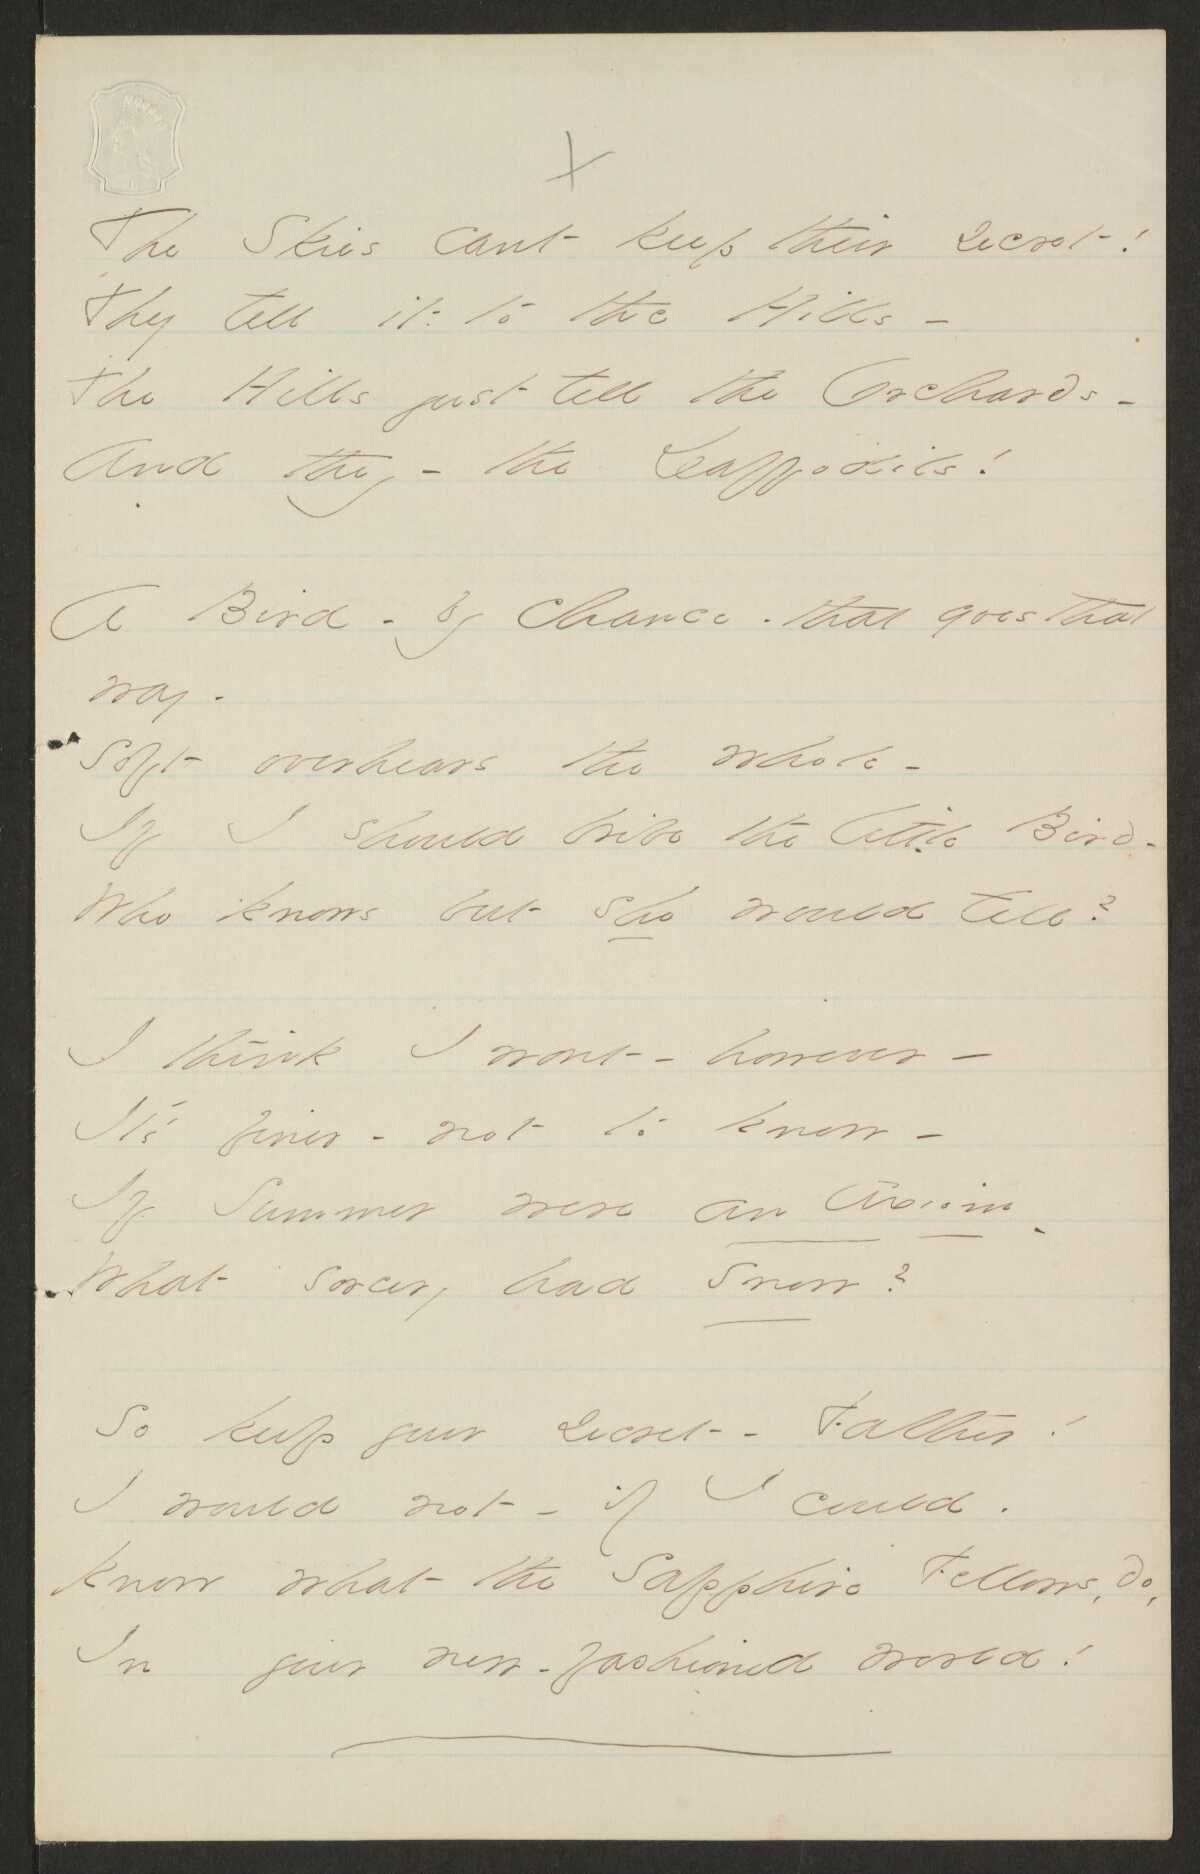 The Skies cant keep their secret!
They tell it to the Hills –
The Hills just tell the Orchards –
And they – the Daffodils!
A Bird – by chance – that goes that
way –
Soft overhears the whole –
If I should bribe the little Bird –
Who knows but she would tell?
I think I wont – however –
It's finer – not to know –
If Summer were an Axiom –
What sorcery had Snow?
So keep your secret – Father!
I would not – if I could –
Know what the Sapphire Fellows, do,
In your new-fashioned world!